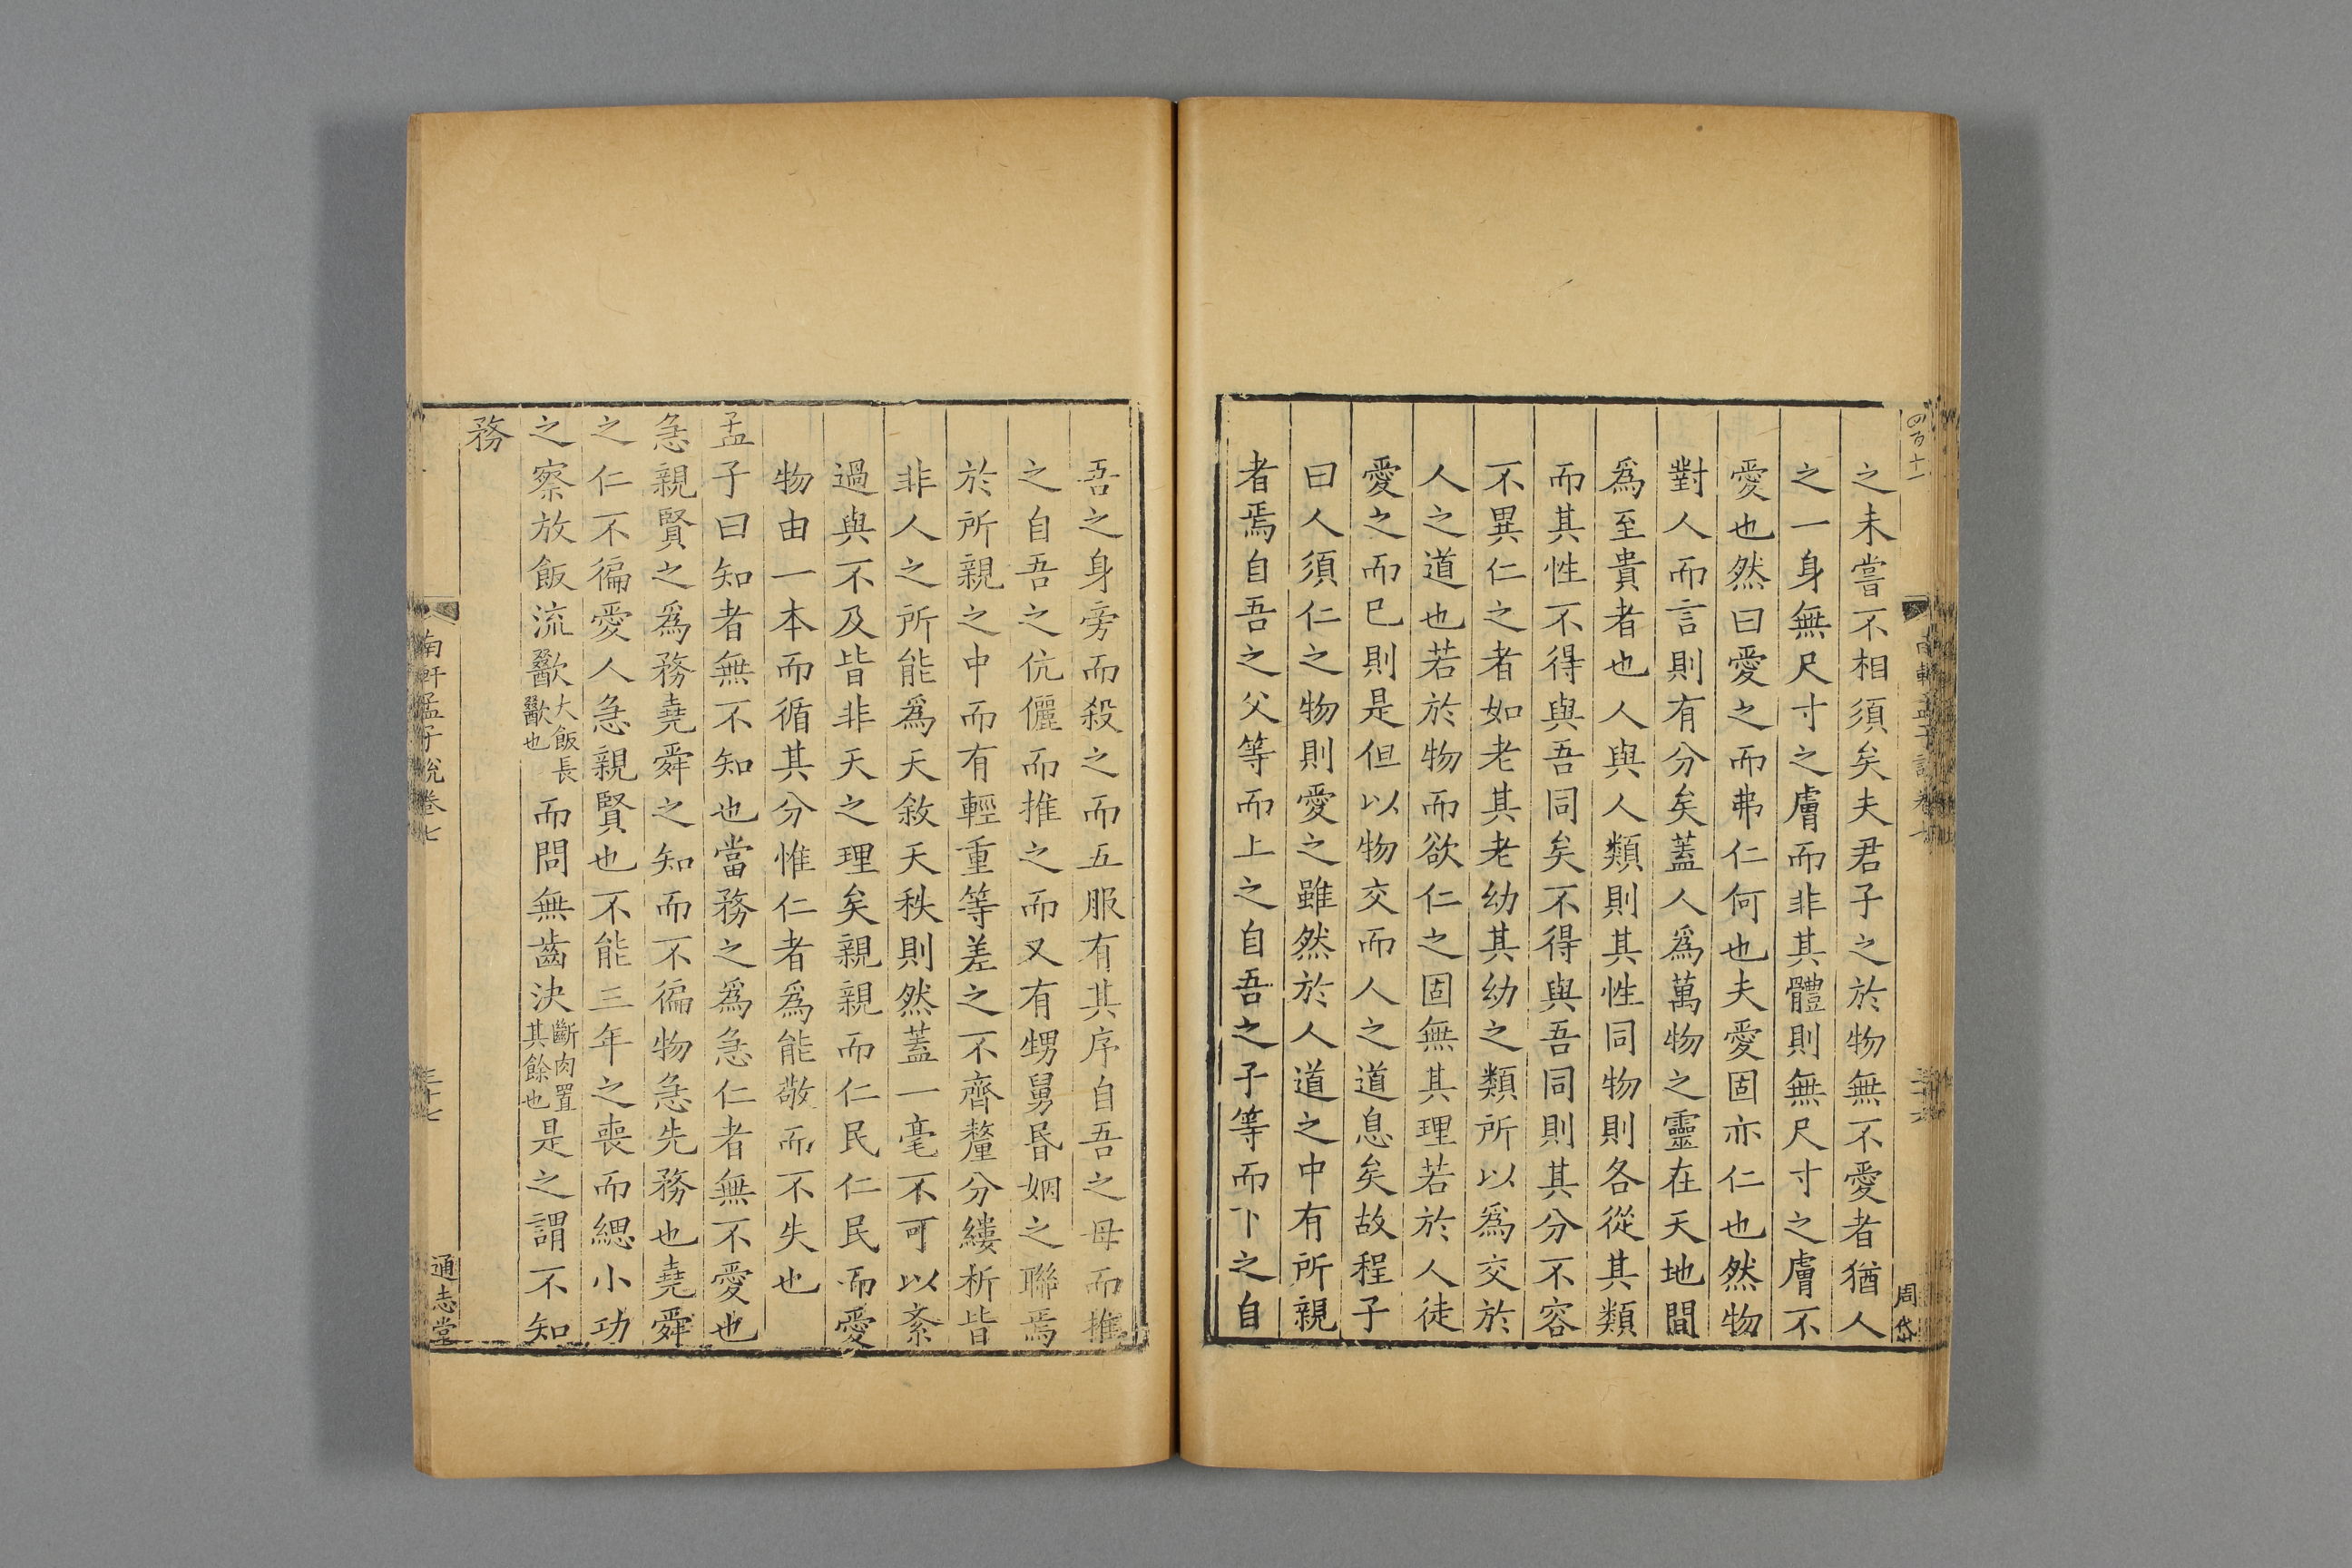 四百十一
南軒孟子說卷七
三十六
周岱
之未嘗不相須矣夫君子之於物無不愛者猶人
之一身無尺寸之膚而非其體則無尺寸之膚不
愛也然曰愛之而弗仁何也夫愛固亦仁也然物
對人而言則有分矣蓋人爲萬物之靈在天地間
爲至貴者也人與人類則其性同物則各從其類
而其性不得與吾同矣不得與吾同則其分不容
不異仁之者如老其老幼其幼之類所以爲交於
人之道也若於物而欲仁之固無其理若於人徒
愛之而已則是但以物交而人之道息矣故程子
曰人須仁之物則愛之雖然於人道之中有所親
者焉自吾之父等而上之自吾之子等而下之自
吾之身旁而殺之而五服有其序自吾之母而推
之自吾之伉儷而推之而又有甥舅昏姻之聯焉
於所親之中而有輕重等差之不齊釐分縷析皆
非人之所能爲天敘天秩則然蓋一毫不可以紊
過與不及皆非天之理矣親親而仁民仁民而愛
物由一本而循其分惟仁者爲能敬而不失也
孟子曰知者無不知也當務之爲急仁者無不愛也
急親賢之爲務堯舜之知而不徧物急先務也堯舜
之仁不徧愛人急親賢也不能三年之喪而緦小功
之察放飯流歠大飯長歠也而問無齒決斷肉置其餘也是之謂不知
務
南軒孟子說卷七
三十七
通志堂